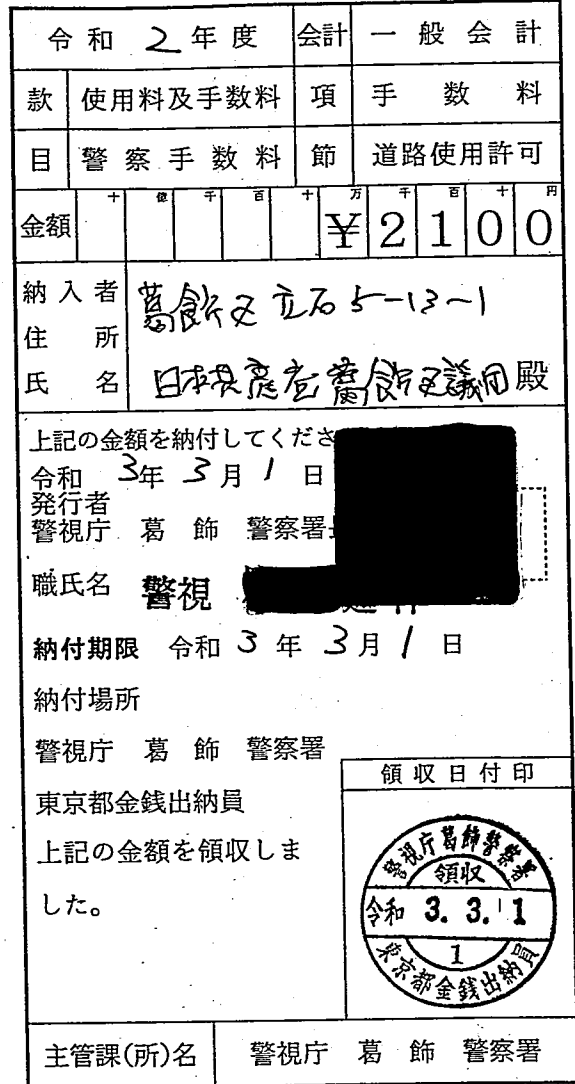 令和 2年度 会計 一般会計
款 使用料及手数料 項 手数料
目 警察手数料 節 道路使用許可
十 億 千 百 十 万 千 百 十 円
金額 ¥2100
納入者
葛飾区立石5-13-1
住所
氏名 日本共産党葛飾区議団 殿
上記の金額を納付してくださ
令和 3年 3月 1日
発行者
警視庁 葛飾 警察署長
職氏名 警視
納付期限 令和 3年 3月 1日
納付場所
警視庁 葛飾 警察署
東京都金銭出納員
上記の金額を領収しま
した。
領収日付印
警視庁葛飾警察署
領収
令和 3.3.1
1
東京都金銭出納員
主管課(所)名 警視庁 葛飾 警察署